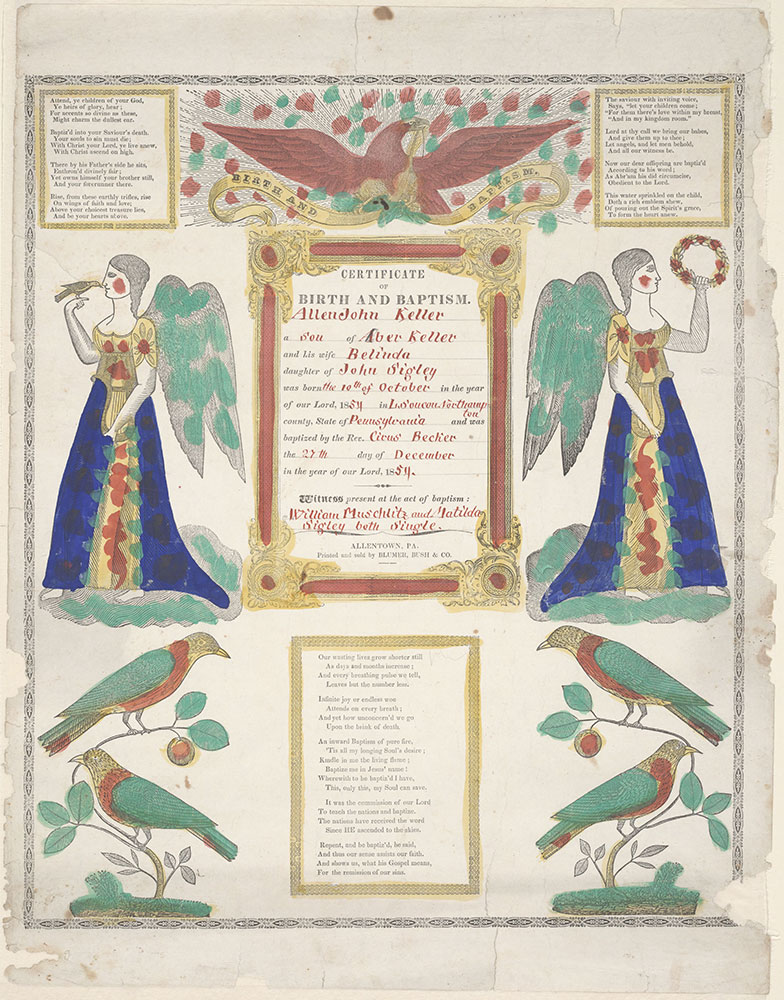 Attend, ye children of your God,
Ye heirs of glory, hear;
For accents so divine as these,
Might charm the dullest ear.
Baptiz'd into your Saviour's death.
Your souls to sin must die;
With Christ your Lord, ye live anew,
With Christ ascend on high.
There by his Father's side he sits,
Enthron'd divinely fair;
Yet owns himself your brother still,
And your forerunner there.
Rise, from these earthly trifles, rise
On wings of faith and love;
Above your choicest treasure lies,
And be your hearts above.
BIRTH AND BAPTISM.
The saviour with inviting voice,
Says, "let your children come;
"For them there's love within my breast,
"And in my kingdom room."
Lord at thy call we bring our babes,
And give them up to thee;
Let angels, and let men behold,
And all our witness be.
Now our dear offspring are baptiz'd
According to his word;
As Abr'am his did circumcise,
Obedient to the Lord.
This water sprinkled on the child,
Doth a rich emblem shew,
Of pouring out the Spirit's grace,
To form the heart anew.
CERTIFICATE
OF
BIRTH AND BAPTISM.
Allen John Keller
a Son of Aber Keller
and his wife Belinda
daughter of John Sigley
was born the 10th of October in the year
of our Lord, 1854 in L. Soucon Northamp
ton
county, State of Pennsylvania and was
baptized by the Rev. Cirus Becker
the 27th day of December
in the year of our Lord, 1854.
Witness present at the act of baptism:
William Muschlitz and Matilda
Sigley both Single.
ALLENTOWN, PA.
Printed and sold by BLUMER, BUSH & CO.
Our wasting lives grow shorter still
As days and months increase;
And every breathing pulse we tell,
Leaves but the number less.
Infinite joy or endless woe
Attends on every breath;
And yet how unconcern'd we go
Upon the brink of death.
An inward Baptism of pure fire,
'Tis all my longing Soul's desire;
Kindle in me the living flame;
Baptize me in Jesus' name!
Wherewith to be baptiz'd I have,
This, only this, my Soul can save.
It was the commission of our Lord
To teach the nations and baptize.
The nations have received the word
Since HE ascended to the skies.
Repent, and be baptiz'd, he said,
And thus our sense assists our faith.
And shows us, what his Gospel means,
For the remission of our sins.